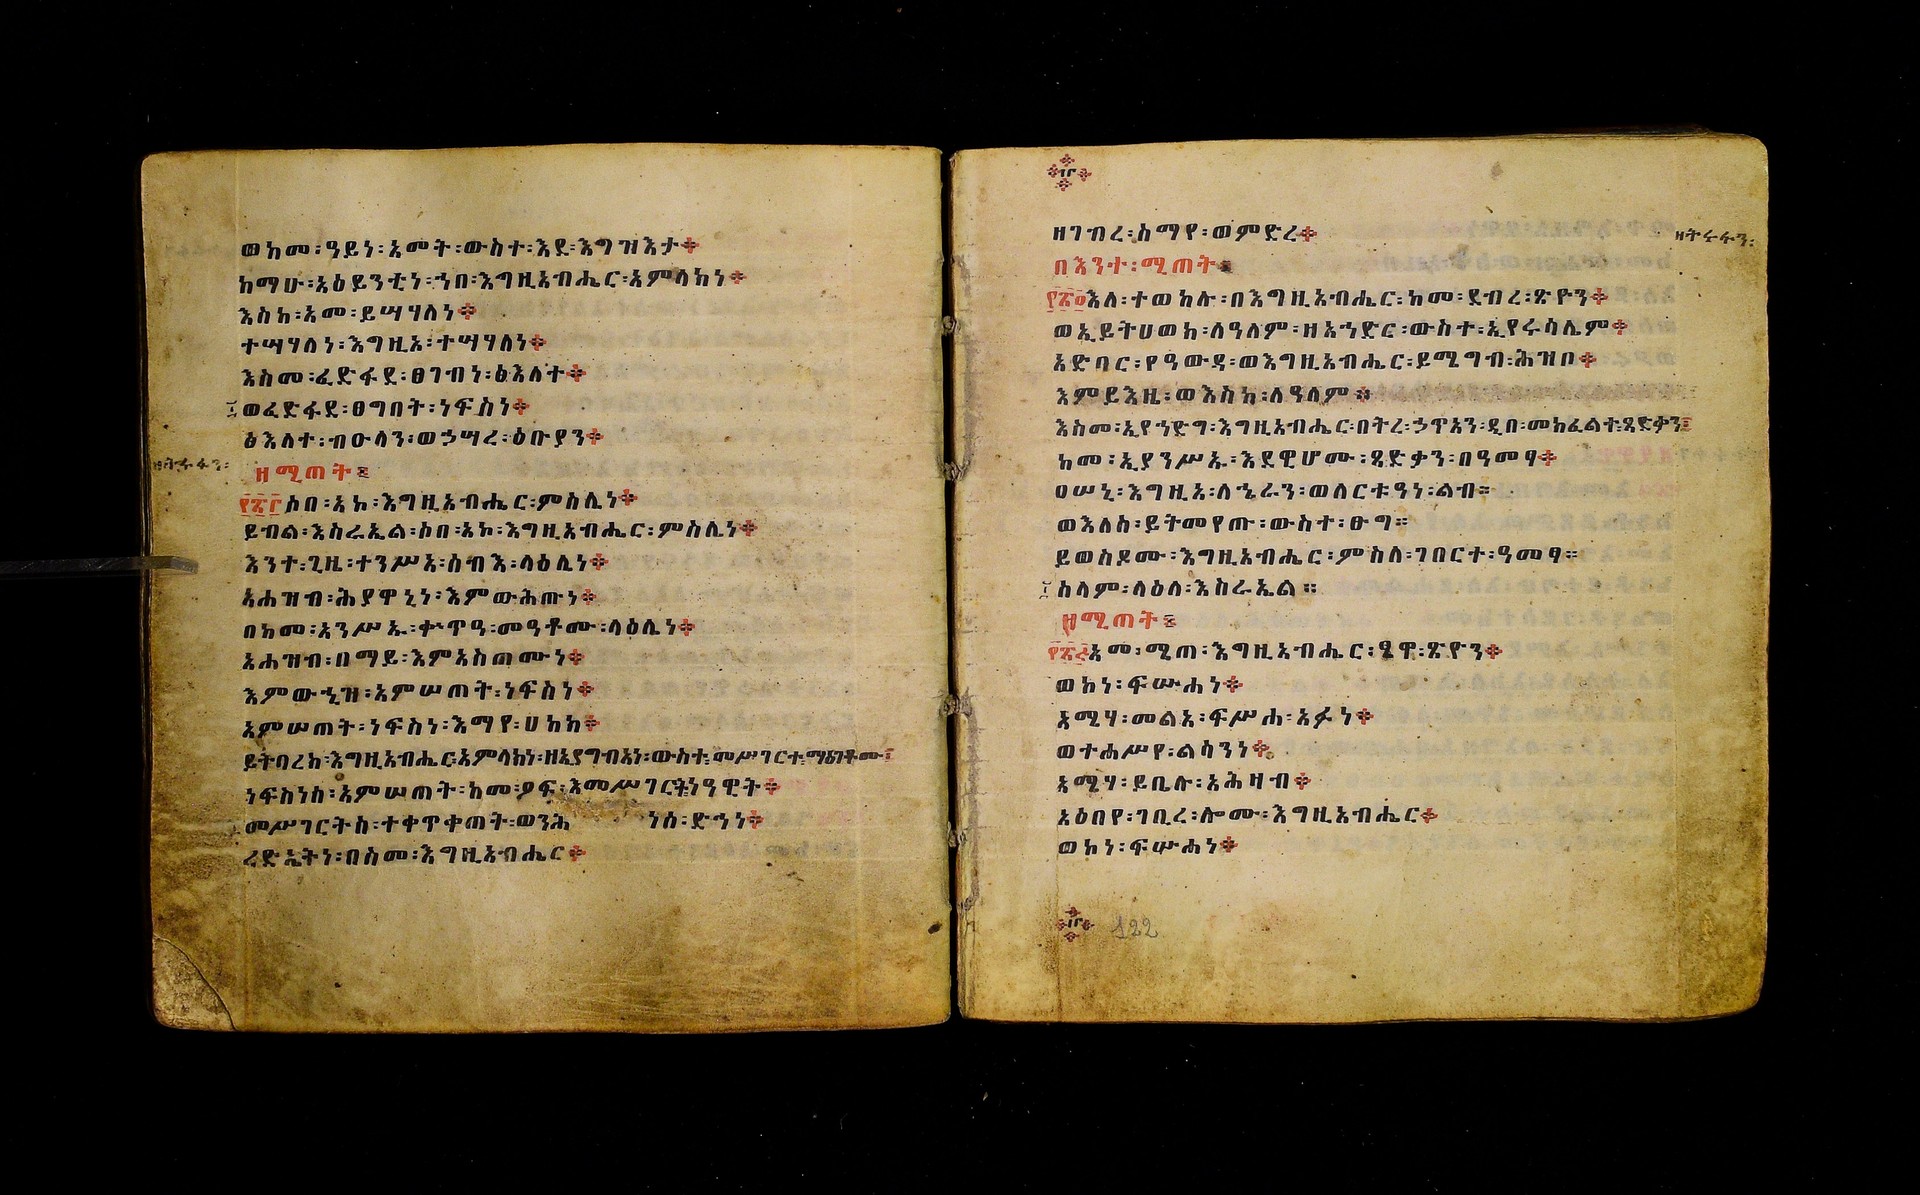 ወከመ፡ዓይነ፡አመት፡ውስተ፡እደ፡እግዝእታ፨
ከማሁ፡አዕይንቲነ፡ኀበ፡እግዚአብሔር፡አምላክነ፨
እስከ፡አመ፡ይሣሃለነ፨
ተሣሃለነ፡እግዚአ፡ተሣሃለነ፨
እስመ፡ፈድፋደ፡ፀገብነ፡ፅእለተ፨
ወፈድፋደ፡ፀግበት፡ነፍስነ፨
ፅእለተ፡ብዑላን፡ወኃሣረ፡ዕቡያን፨
ዘትፉፋን፡
ዘሚጠት፤
፻፳፫ሶበ፡አኮ፡እግዚአብሔር፡ምስሌነ፨
ይብል፡እስራኤል፡ሶበ፡አኮ፡እግዚአብሔር፡ምስሌነ፨
እንተ፡ጊዜ፡ተንሥአ፡ሰብእ፡ላዕሌነ፨
አሐዝብ፡ሕያዋኒነ፡እምውሕጡነ፨
በከመ፡አንሥኡ፡ቍጥዓ፡መዓቶሙ፡ላዕሌነ፨
አሐዝብ፡በማይ፡እምአስጠሙነ፨
እምውኂዝ፡አምሠጠት፡ነፍስነ፨
አምሠጠት፡ነፍስነ፡እማየ፡ሀከክ፨
ይትባረክ፡እግዚአብሔር፡አምላክነ፡ዘኢያግብአነ፡ውስተ፡መሥገርተ፡ማዕገቶሙ፤
ነፍስነሰ፡አምሠጠት፡ከመ፡ዖፍ፡እመሥገርት፡ነዓዊት፨
መሥገርትሰ፡ተቀጥቀጠት፡ወንሕ ነሰ፡ድኅነ፨
ረድኤትነ፡በስመ፡እግዚአብሔር፨
፲፫
ዘገብረ፡ሰማየ፡ወምድረ፨
ዘትፉፋን፡
በእንተ፡ሚጠት፤
፻፳፬እለ፡ተወከሉ፡በእግዚአብሔር፡ከመ፡ደብረ፡ጽዮን፨
ወኢይትሀወክ፡ለዓለም፡ዘአኀድር፡ውስተ፡ኢየሩሳሌም፨
አድባር፡የዓውዳ፡ወእግዚአብሔር፡ይሜግብ፡ሕዝቦ፨
እምይእዜ፡ወእስከ፡ለዓለም፨
እስመ፡ኢየኀድግ፡እግዚአብሔር፡በትረ፡ኃጥአን፡ዲበ፡መክፈልተ፡ጻድቃን፤
ከመ፡ኢያንሥኡ፡እደዊሆሙ፡ጻድቃን፡በዓመፃ፨
ዐሠኒ፡እግዚአ፡ለኄራን፡ወለርቱዓነ፡ልብ።
ወእለሰ፡ይትመየጡ፡ውስተ፡ፁግ።
ይወስዶሙ፡እግዚአብሔር፡ምስለ፡ገበርተ፡ዓመፃ።
ሰላም፡ላዕለ፡እስራኤል።
ዘሚጠት፤
፻፳፭አመ፡ሜጠ፡እግዚአብሔር፡ፄዋ፡ጽዮን፨
ወኮነ፡ፍሡሐነ፨
አሜሃ፡መልአ፡ፍሥሐ፡አፉነ፨
ወተሐሥየ፡ልሳንነ፨
አሜሃ፡ይቤሉ፡አሕዛብ፨
አዕበየ፡ገቢረ፡ሎሙ፡እግዚአብሔር፨
ወኮነ፡ፍሡሐነ፨
፲፫ 122